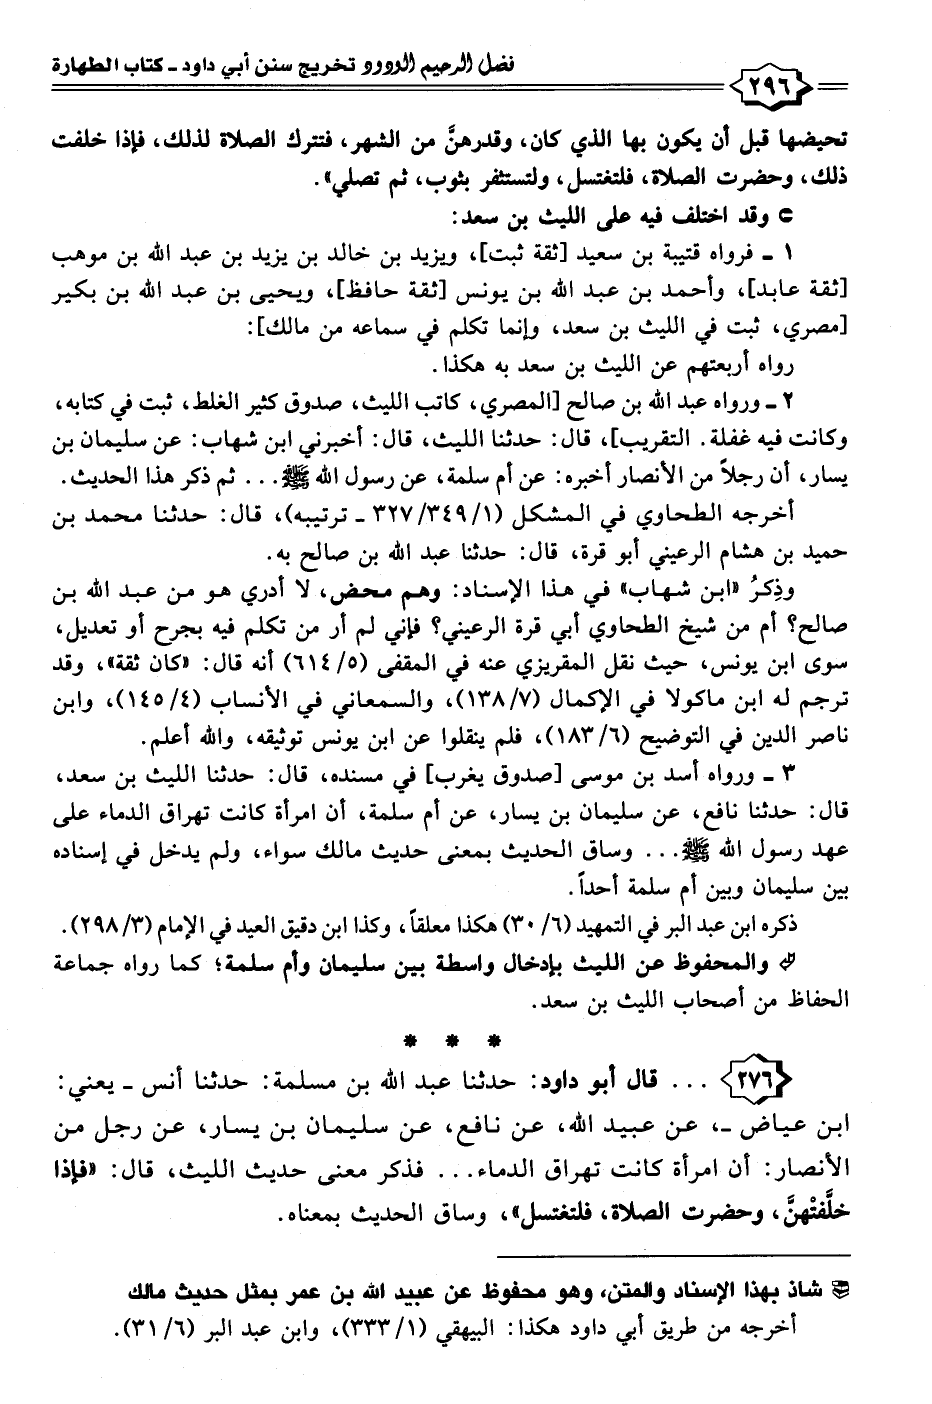 فضل الرحيم الودود تخريج سنن أبي داود ـ كتاب الطهارة
٢٩٦
تحيضها قبل أن يكون بها الذي كان، وقدرهنَّ من الشهر، فتترك الصلاة لذلك، فإذا خلفت
ذلك، وحضرت الصلاة، فلتغتسل، ولتستثفر بثوب، ثم تصلي».
⊃ وقد اختلف فيه على الليث بن سعد:
١ ـ فرواه قتيبة بن سعيد [ثقة ثبت]، ويزيد بن خالد بن يزيد بن عبد الله بن موهب
[ثقة عابد]، وأحمد بن عبد الله بن يونس [ثقة حافظ]، ويحيى بن عبد الله بن بكير
[مصري، ثبت في الليث بن سعد، وإنما تكلم في سماعه من مالك]:
رواه أربعتهم عن الليث بن سعد به هكذا.
٢ ـ ورواه عبد الله بن صالح [المصري، كاتب الليث، صدوق كثير الغلط، ثبت في كتابه،
وكانت فيه غفلة. التقريب]، قال: حدثنا الليث، قال: أخبرني ابن شهاب: عن سليمان بن
يسار، أن رجلاً من الأنصار أخبره: عن أم سلمة، عن رسول الله ﷺ... ثم ذكر هذا الحديث.
أخرجه الطحاوي في المشكل (١/٣٤٩/٣٢٧ ـ ترتيبه)، قال: حدثنا محمد بن
حميد بن هشام الرعيني أبو قرة، قال: حدثنا عبد الله بن صالح به.
وذِكرُ «ابن شهاب» في هذا الإسناد: وهم محض، لا أدري هو من عبد الله بن
صالح؟ أم من شيخ الطحاوي أبي قرة الرعيني؟ فإني لم أر من تكلم فيه بجرح أو تعديل،
سوى ابن يونس، حيث نقل المقريزي عنه في المقفى (٥/٦١٤) أنه قال: «كان ثقة»، وقد
ترجم له ابن ماكولا في الإكمال (٧/١٣٨)، والسمعاني في الأنساب (٤/١٤٥)، وابن
ناصر الدين في التوضيح (٦/١٨٣)، فلم ينقلوا عن ابن يونس توثيقه، والله أعلم.
٣ ـ ورواه أسد بن موسى [صدوق يغرب] في مسنده، قال: حدثنا الليث بن سعد،
قال: حدثنا نافع، عن سليمان بن يسار، عن أم سلمة، أن امرأة كانت تهراق الدماء على
عهد رسول الله ﷺ... وساق الحديث بمعنى حديث مالك سواء، ولم يدخل في إسناده
بين سليمان وبين أم سلمة أحداً.
ذكره ابن عبد البر في التمهيد (٦/٣٠) هكذا معلقاً، وكذا ابن دقيق العيد في الإمام (٣/٢٩٨).
والمحفوظ عن الليث بإدخال واسطة بين سليمان وأم سلمة؛ كما رواه جماعة
الحفاظ من أصحاب الليث بن سعد.
* * *
٢٧٦ ... قال أبو داود: حدثنا عبد الله بن مسلمة: حدثنا أنس ـ يعني:
ابن عياض ـ، عن عبيد الله، عن نافع، عن سليمان بن يسار، عن رجل من
الأنصار: أن امرأة كانت تهراق الدماء... فذكر معنى حديث الليث، قال: «فإذا
خلَّفتْهنَّ، وحضرت الصلاة، فلتغتسل»، وساق الحديث بمعناه.
شاذ بهذا الإسناد والمتن، وهو محفوظ عن عبيد الله بن عمر بمثل حديث مالك
أخرجه من طريق أبي داود هكذا: البيهقي (١/٣٣٣)، وابن عبد البر (٦/٣١).